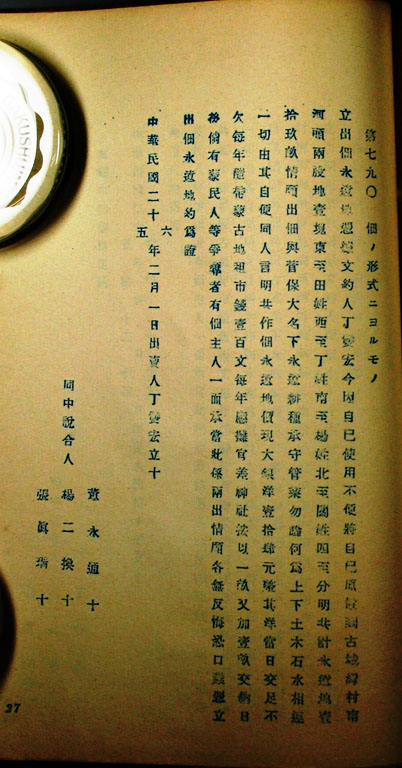 第七九〇 佃ノ形式ニヨルモノ
立出佃永遠地憑據文約人丁雙宏今因自己使用不便將自己原置圖古城縣村南
河頭兩段地壹塊東至田姓西至丁姓南至楊姓北至國姓四至分明共計永遠地壹
拾玖畝情願出佃與菅保大名下永遠耕種承守管業勿論何為上下土木石水相連
一切由其自便同人言明共作佃永遠地價現大銀洋壹拾肆元整其洋當日交足不
欠每年應帶蒙古地租市錢壹百文每年應攤官差神社按以一畝又加壹畝交納日
後倘有蒙民人等爭奪者有佃主人一面承當此係兩出情願各無反悔恐口無憑立
出佃永遠地約為證
中華民國二十五六年二月一日出賣人丁雙宏立十
同中說合人
董永通十
楊二換十
張眞瑞十
27